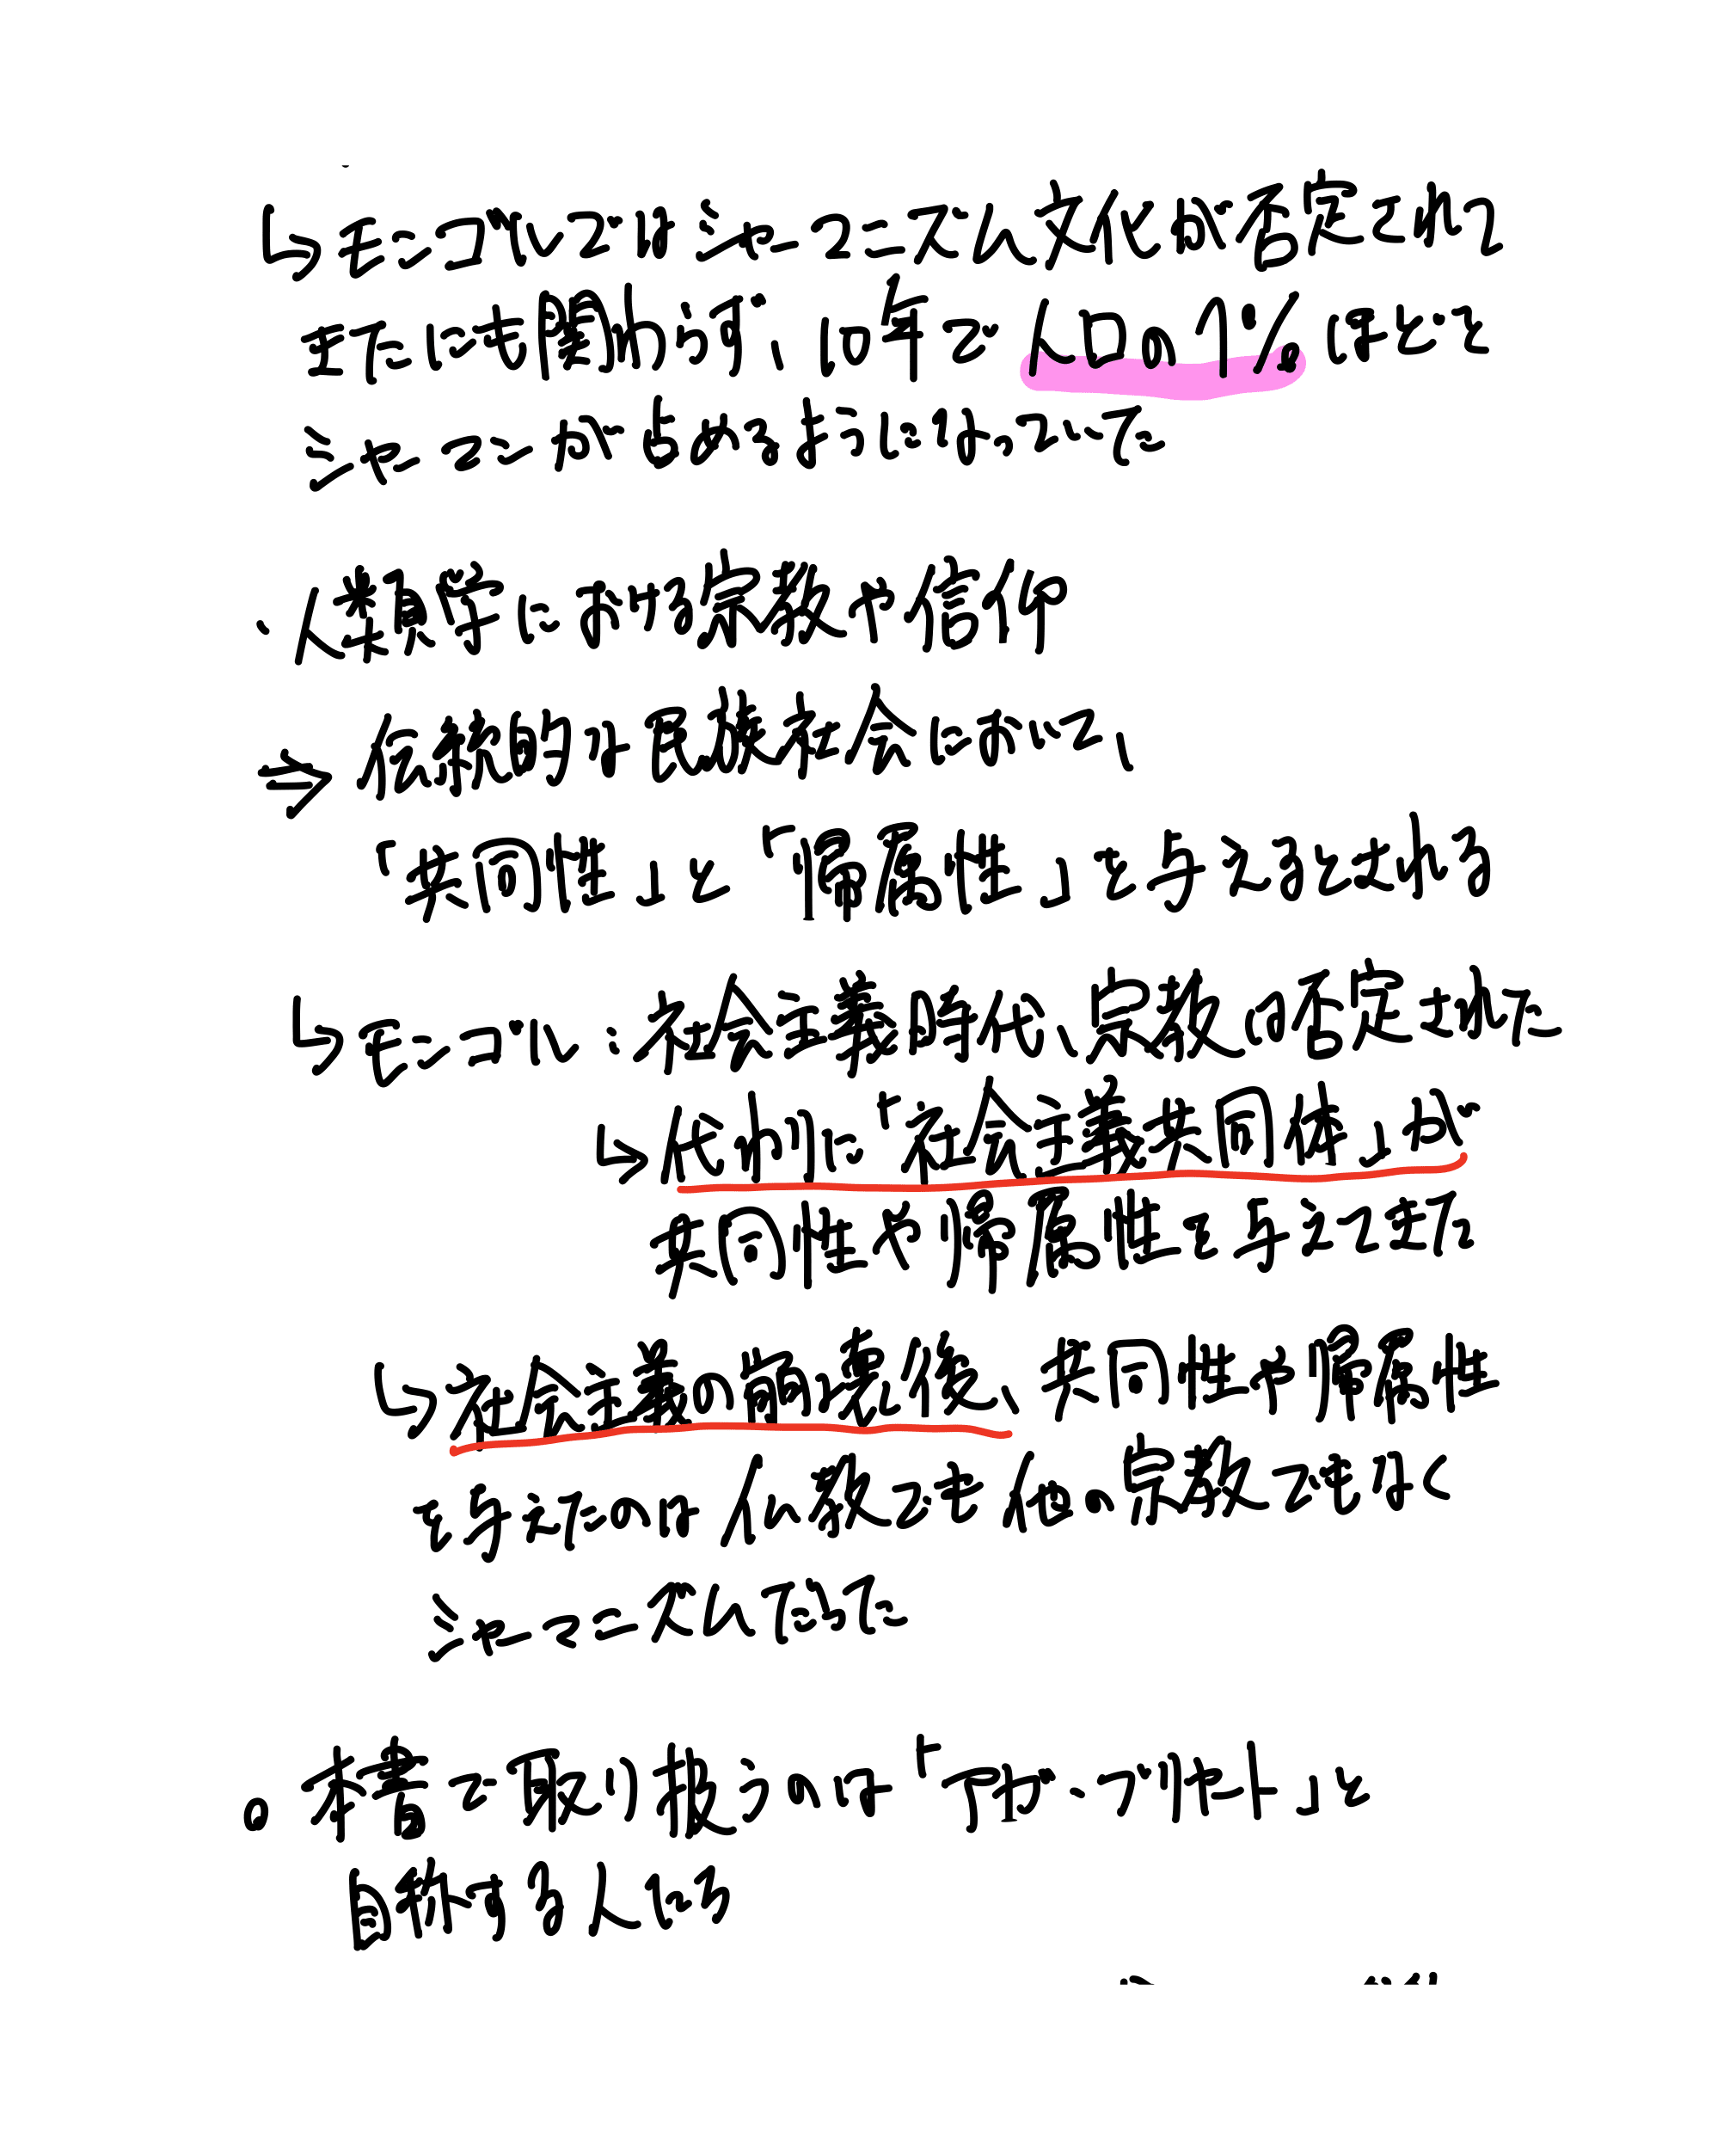 ↳モンゴルではシャーマニズム文化が否定されて
きたにも関わらず、10年で人口の1%ほどを
シャーマンがしめるようになっていた
・人類学における宗教や信仰
⇒伝統的な民族社会において、
「共同性」と「帰属性」を与えるとされる
↳モンゴル:社会主義時代、宗教は否定された
↳代わりに「社会主義共同体」が
共同性や帰属性を与えてきた
↳社会主義の崩壊後、共同性や帰属性
を与えたのは仏教でも他の宗教でもなく
シャーマニズムだった
。本書で取り扱うのは「アガ・ブリヤート」と
自称する人たち